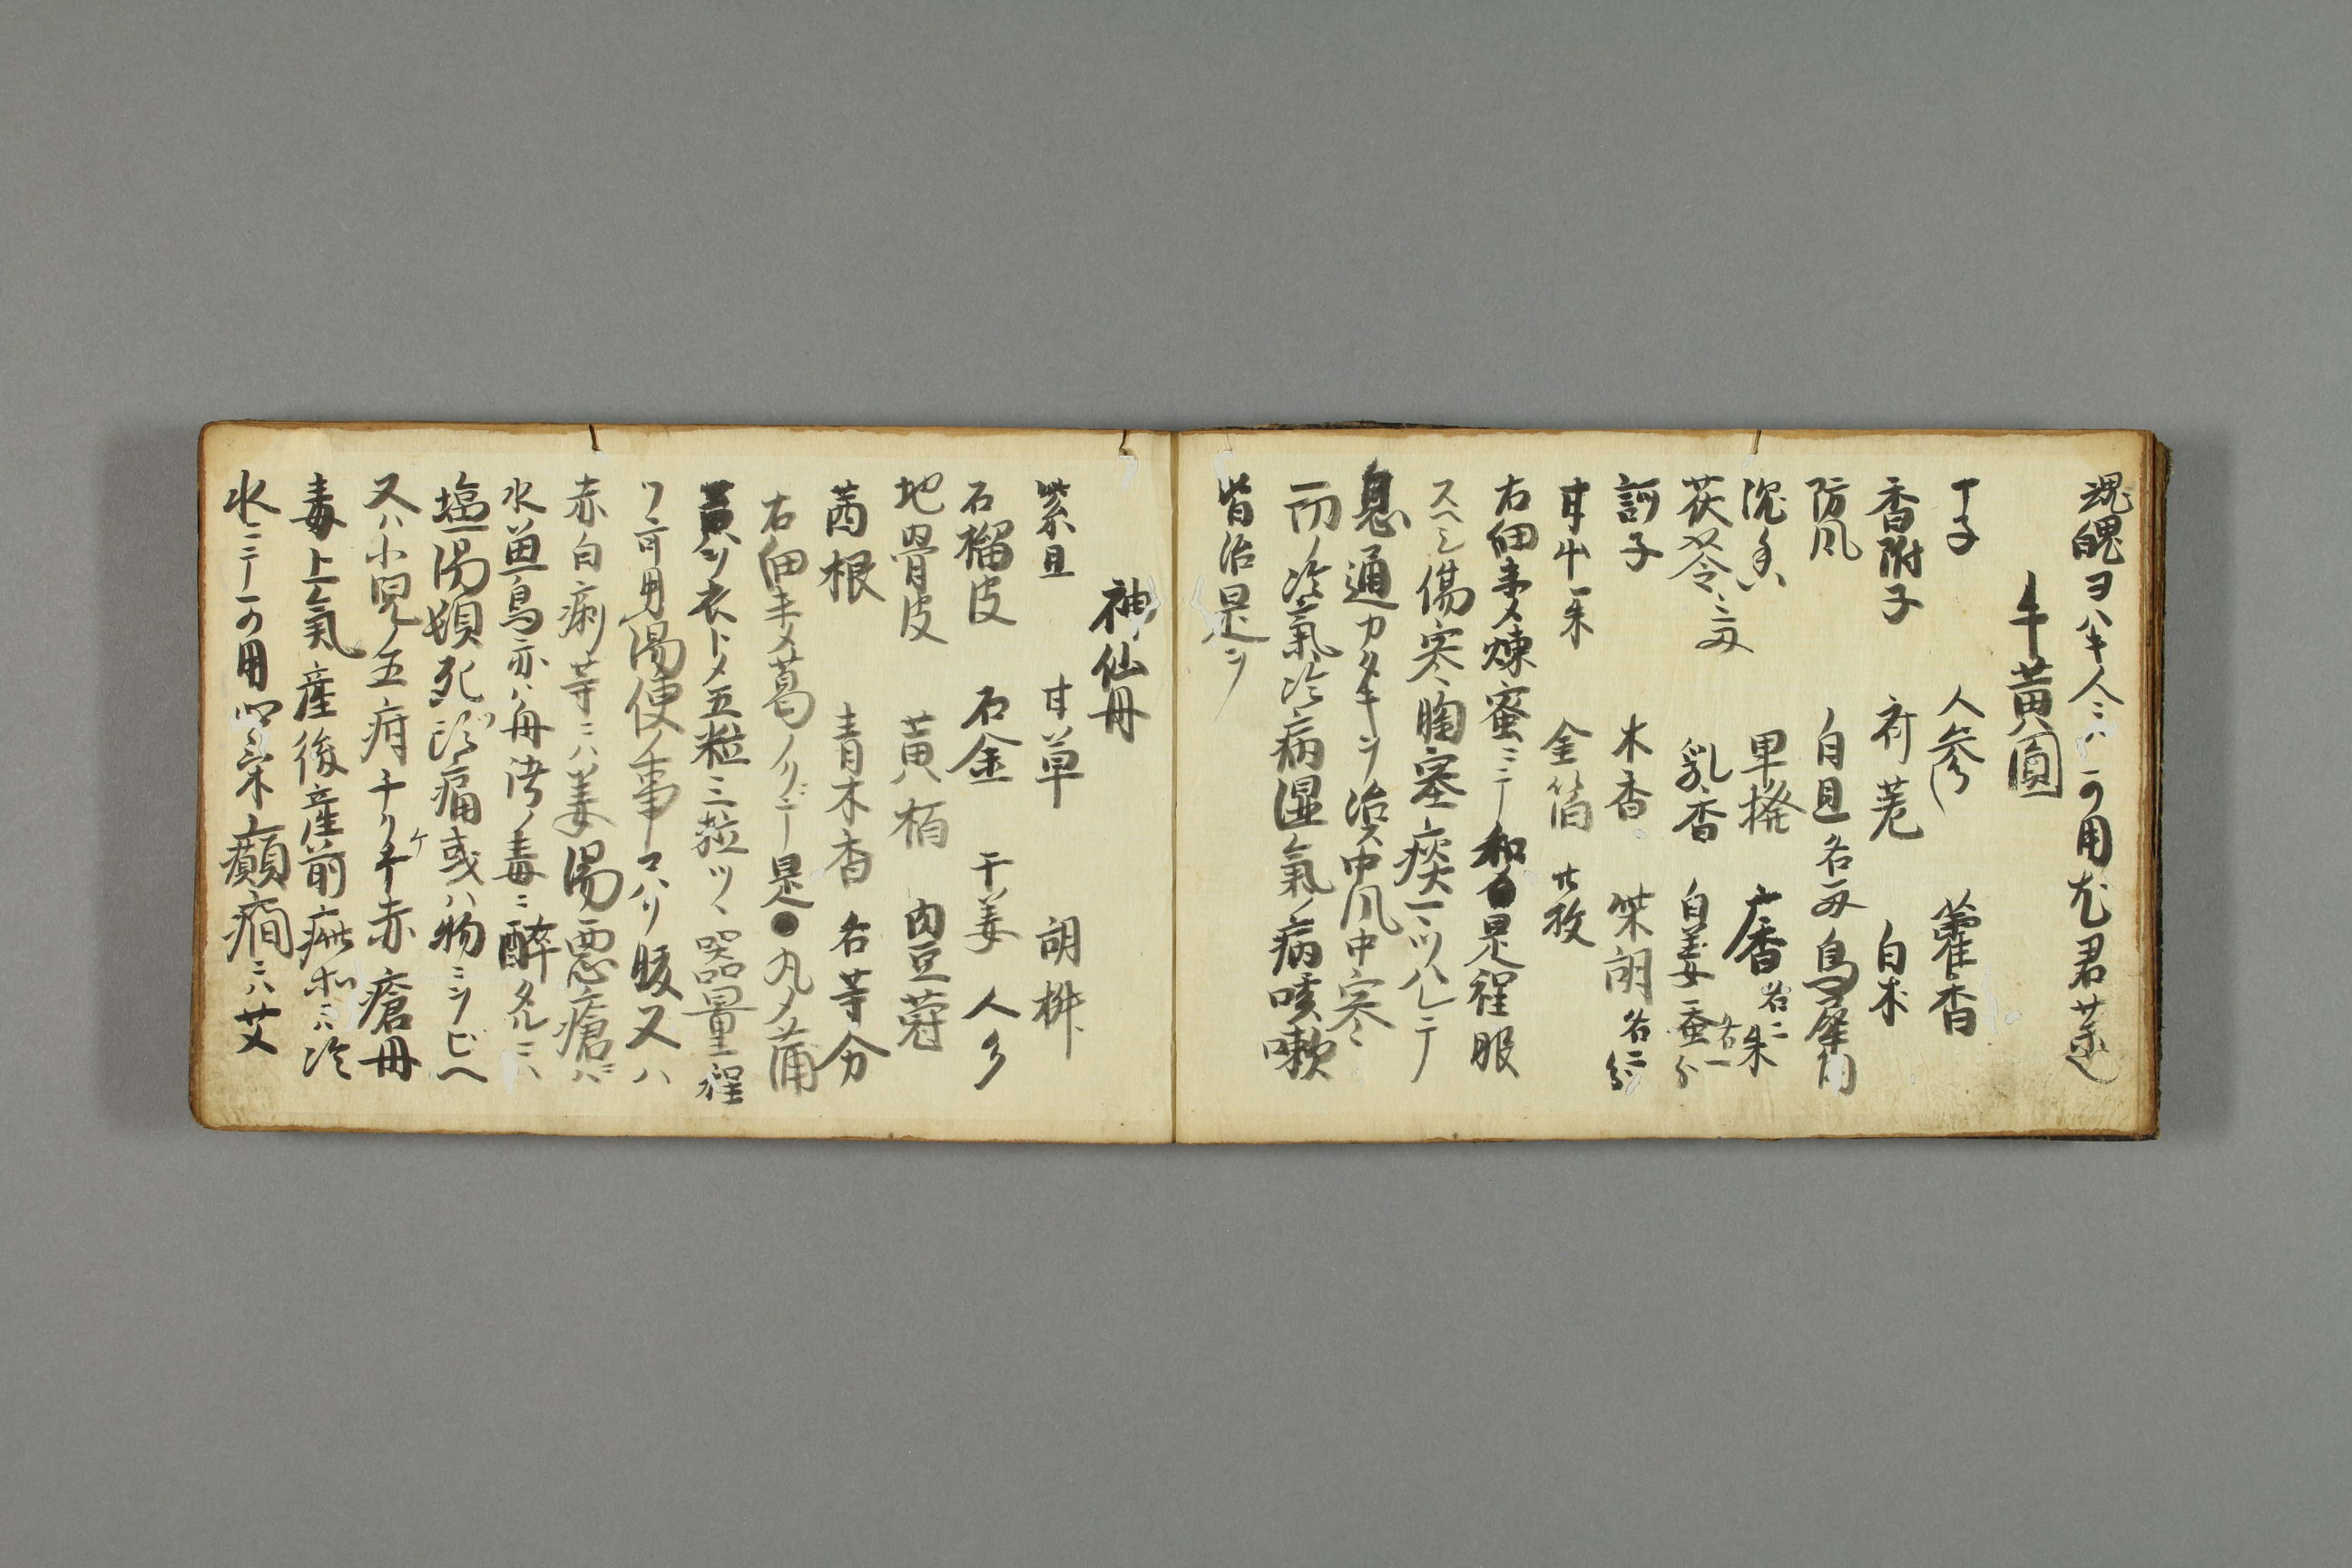 魂魄ヨハキ人ニハ可用尤君薬
牛黄圓
丁子 人参 藿香
香附子 白朮
防風 白旦 各一両 烏犀角
沈香 畢撥 广香 各二朱
茯苓 三両 乳香 白姜蚕 各一分
訶子 木香 柴胡 各二分
甘中一朱 金箔 廿枚
右細末メ煉蜜ニテ和合●是程服
スヘシ傷寒胸塞痰一ツハレテ
息通カタキヲ治ス中風中寒
而ノ冷氣冷病湿氣ノ病咳嗽
皆治是ヲ
神仙丹
紫旦 甘草 胡桝
石榴皮 石金 干姜 人参
地骨皮 黄栢 肉豆蒄
茜根 青木香 各等分
右細末メ葛ノリニテ是●丸メ蒲
黄ヲ衣トメ五粒三粒ツヽ器量程
ツヽ可用湯使ノ事コハリ腹又ハ
赤白痢等ニハ姜湯悪瘡ニハ
水魚鳥亦ハ毒ニ酔タルニハ
塩湯頓死頭痛或ハ物ミシビヘ
又ハ小児ノ五疳 赤瘡丹
毒上氣産後産前ニハ冷
水ニテ可用 癲癇ニハ艾